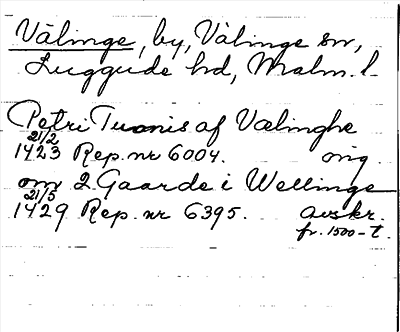 Välinge, by, Välinge sn,
Luggude hd, Malm. l.
Petri Tuonis af Vælinghe
21/2
1423 Rep. nr 6004. orig.
om 2 Gaarde i Wellinge
21/5
1429 Rep. nr 6395. avskr.
fr. 1500-t.